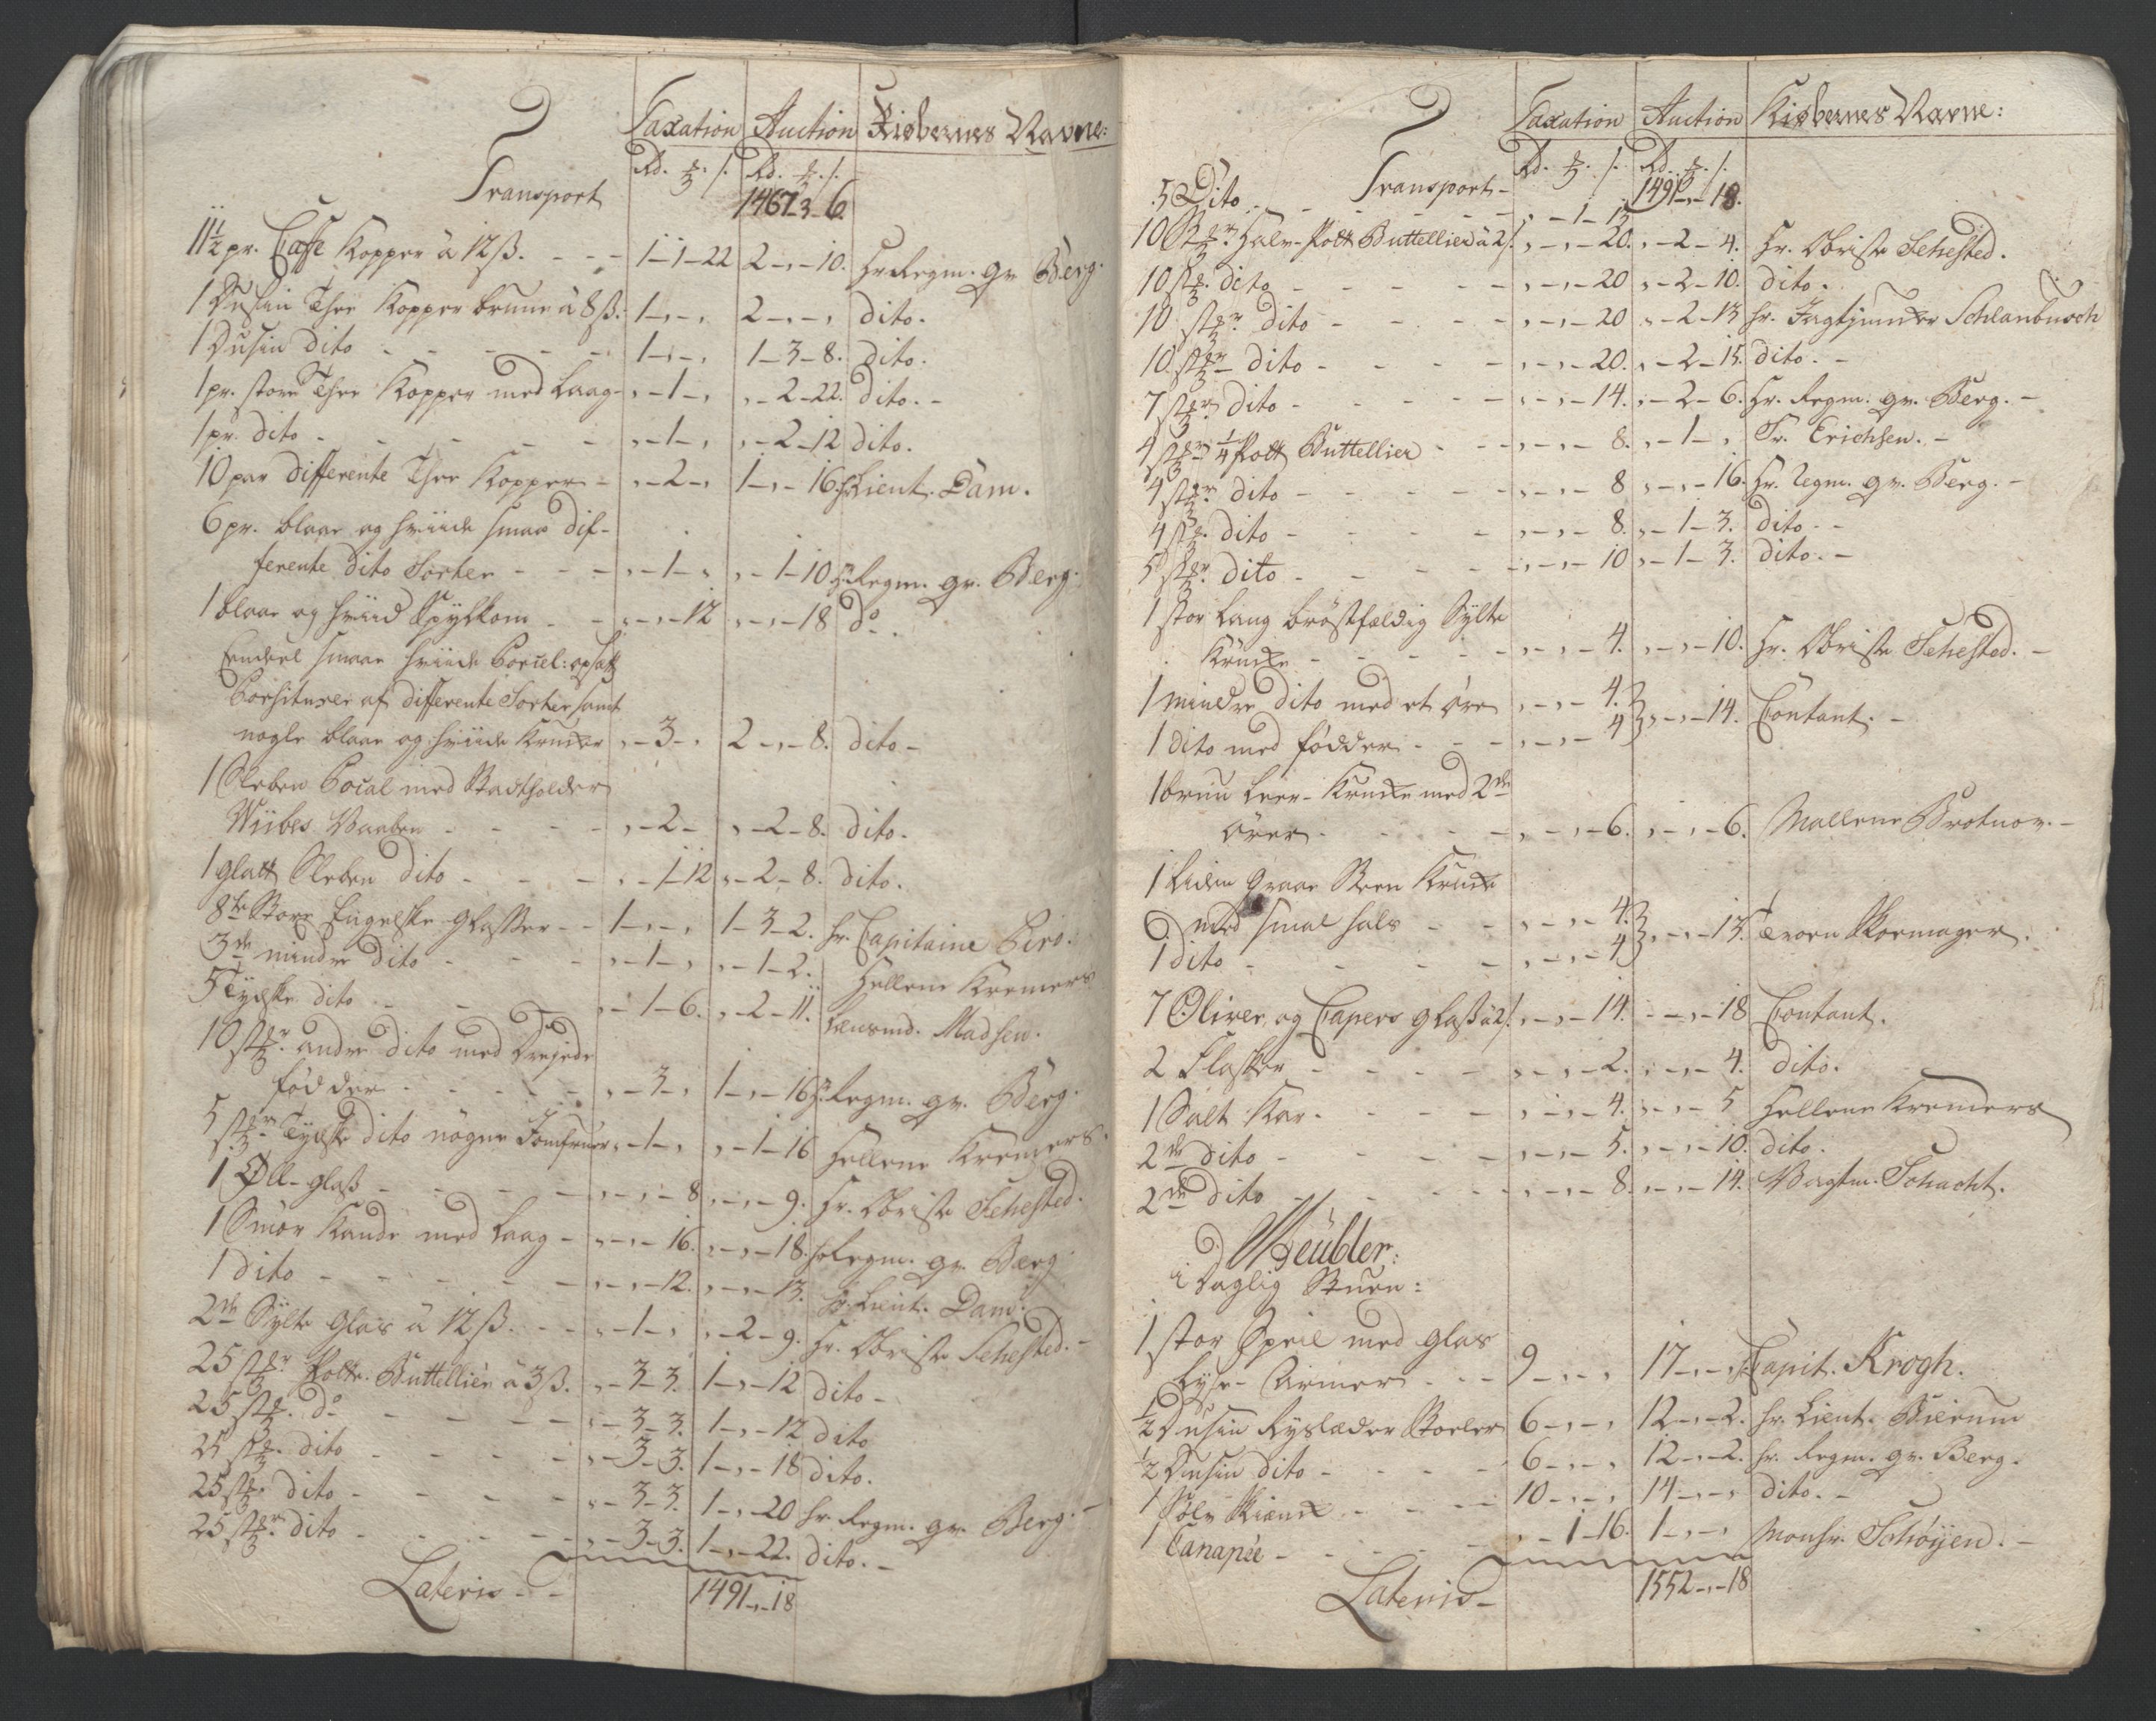 Taxation Auction Kiöbernes Navne:
Rd. ℥. s. Rd. ℥. s.
Transport 1467-3-6.
11½ pr. Caffe Kopper à 12ß. - - - 1-1-22 2-,-10. Hr Regm. qv. Berg.
1 Dusin Thee Kopper brune à 8ß. 1-,-, 2-,-, dito.
1 Dusin dito - - - - - 1-,-, 1-3-8. dito.
1 pr. store Thee Kopper med Laag - ,-1-, ,-2-22. dito. -
1 pr. dito - - - - - ,-1-, ,-2-12 dito.
10 par differente Thee Kopper - ,-2-, 1-,-16. Hr Lieut. Dam.
6 pr. blaae og hviide smaa dif-
ferente dito Sorter - - - ,-1-, ,-1-10 Hr Regm. qv. Berg.
1 blaae og hviid Spylkom - - ,-,-12 ,-,-18 do.
Endeel smaae hviide Porcel: opsatz
Porsiturer af differente Sorter samt
nogle blaae og hviide Krukker ,-3-, 2-,-8. dito -
1 Sleben Pocal med Stadtholder
Wiibes Vaaben - - - - ,-2-, ,-2-8. dito.
1 glatt Sleben dito - - - ,-1-12 ,-2-8. dito.
8te Store Engelske Glasser - - 1-,-, 1-3-2. hr. Capitaine Biro.
3de mindre dito - - - ,-1-, ,-1-2. Hellene Kremers
5 Tydske dito - - - ,-1-6. ,-2-11. Lensmd. Madsen.
10 stkr. andre dito med Drejede
födder - - - - - ,-3-, 1-,-16 Hr Regm. qv. Berg.
5 stkr. Tydske dito nögne Jomfruer ,-1-, ,-1-16 Hellene Kremers.
1 Øll-glaß - - - - - ,-,-8 ,-,-9. Hr. Obriste Sehested.
1 Smör Kande med Laag - ,-,-16. ,-,-18. Hr Regm. qv. Berg
1 dito - - - - - ,-,-12. ,-,-13. Hr. Lieut. Dam.
2de Sylte Glas à 12ß. - - ,-1-, ,-2-9. Hr. Obriste Sehested. -
25 stkr. Potte-Buttellier à 3ß. ,-3-3. 1-,-12 dito -
25 stk. do - - - - ,-3-3. 1-,-12 dito
25 stk. dito - - - - ,-3-3. 1-,-18 dito.
25 stk. dito - - - - ,-3-3. 1-,-20 hr. Regm. qv. Berg. -
25 stkr. dito - - - - ,-3-3. 1-,-22. dito. -
Lateris - - 1491-,-18
Taxation Auction Kiöbernes Navne:
Rd. ℥. s. Rd. ℥. s.
Transport - 1491-,-18.
5 Dito - - - - - ,-1-15
10 Stkr. Halv-Pott Buttellier à 2s. ,-,-20. ,-2-4. Hr. Obriste Sehested.
10 stk. dito - - - - - ,-,-20 ,-2-10. dito.
10 stkr. dito - - - - ,-,-20 ,-2-13 hr. Jagtjunker Schlanbusch
10 stkr. dito - - - - ,-,-20. ,-2-15. dito. -
7 stkr. dito - - - - ,-,-14. ,-2-6. Hr. Regm. qv. Berg. -
4 stkr. ¼ Pott Buttellier - - ,-,-8. ,-1-, Fr. Erichsen. -
4 stkr. dito - - - - ,-,-8 ,-,-16. Hr. Regm. qv. Berg. -
4 stk. dito - - - - ,-,-8. ,-1-3. dito - -
5 stkr. dito - - - - ,-,-10 ,-1-3. dito. -
1 stor lang bröstfældig Sylte
Krukke - - - - - ,-,-4. ,-,-10. Hr. Obriste Sehested. -
1 mindre dito med et Öre ,-,-4.
1 dito med födder - - - ,-,-4 ,-,-14. Contant. -
1 bruun Leer-Krukke med 2de
Örer - - - - - ,-,-6. ,-,-6. Mallene Brotuer. -
1 Liden graae Steen Krukke
med smal hals - - ,-,-4.
1 dito - - - - ,-,-4 ,-,-13. Tvorn Skoemager.
7 Oliver og Capers glaß à 2s. ,-,-14. ,-,-18 Contant.
2 Flasker - - - - ,-,-2. ,-,-4. dito.
1 Salt Kar - - - - ,-,-4. ,-,-5 Hellene Kremers
2de dito - - - - ,-,-5. ,-,-10. dito.
2de dito - - - - ,-,-8. ,-,-14. Vagtm. Schacht.
Meubler:
i Daglig Stuen:
1 stor Speil med glas
Lyse-Armer - - - 9-,-, 17-,-, Capit. Krogh.
½ Dusin Ryslæder Stoeler 6-,-, 12-,-2. hr. Lieut. Bierum
½ Dusin dito - - - - 6-,-, 12-,-2. hr. Regm. qv. Berg.
1 Sölv Skiænk - - - 10-,-, 14-,-, dito. -
1 Canapée - - - - ,-1-16. 1-,-, Monsr. Schöyen. -
Lateris - 1552-,-18